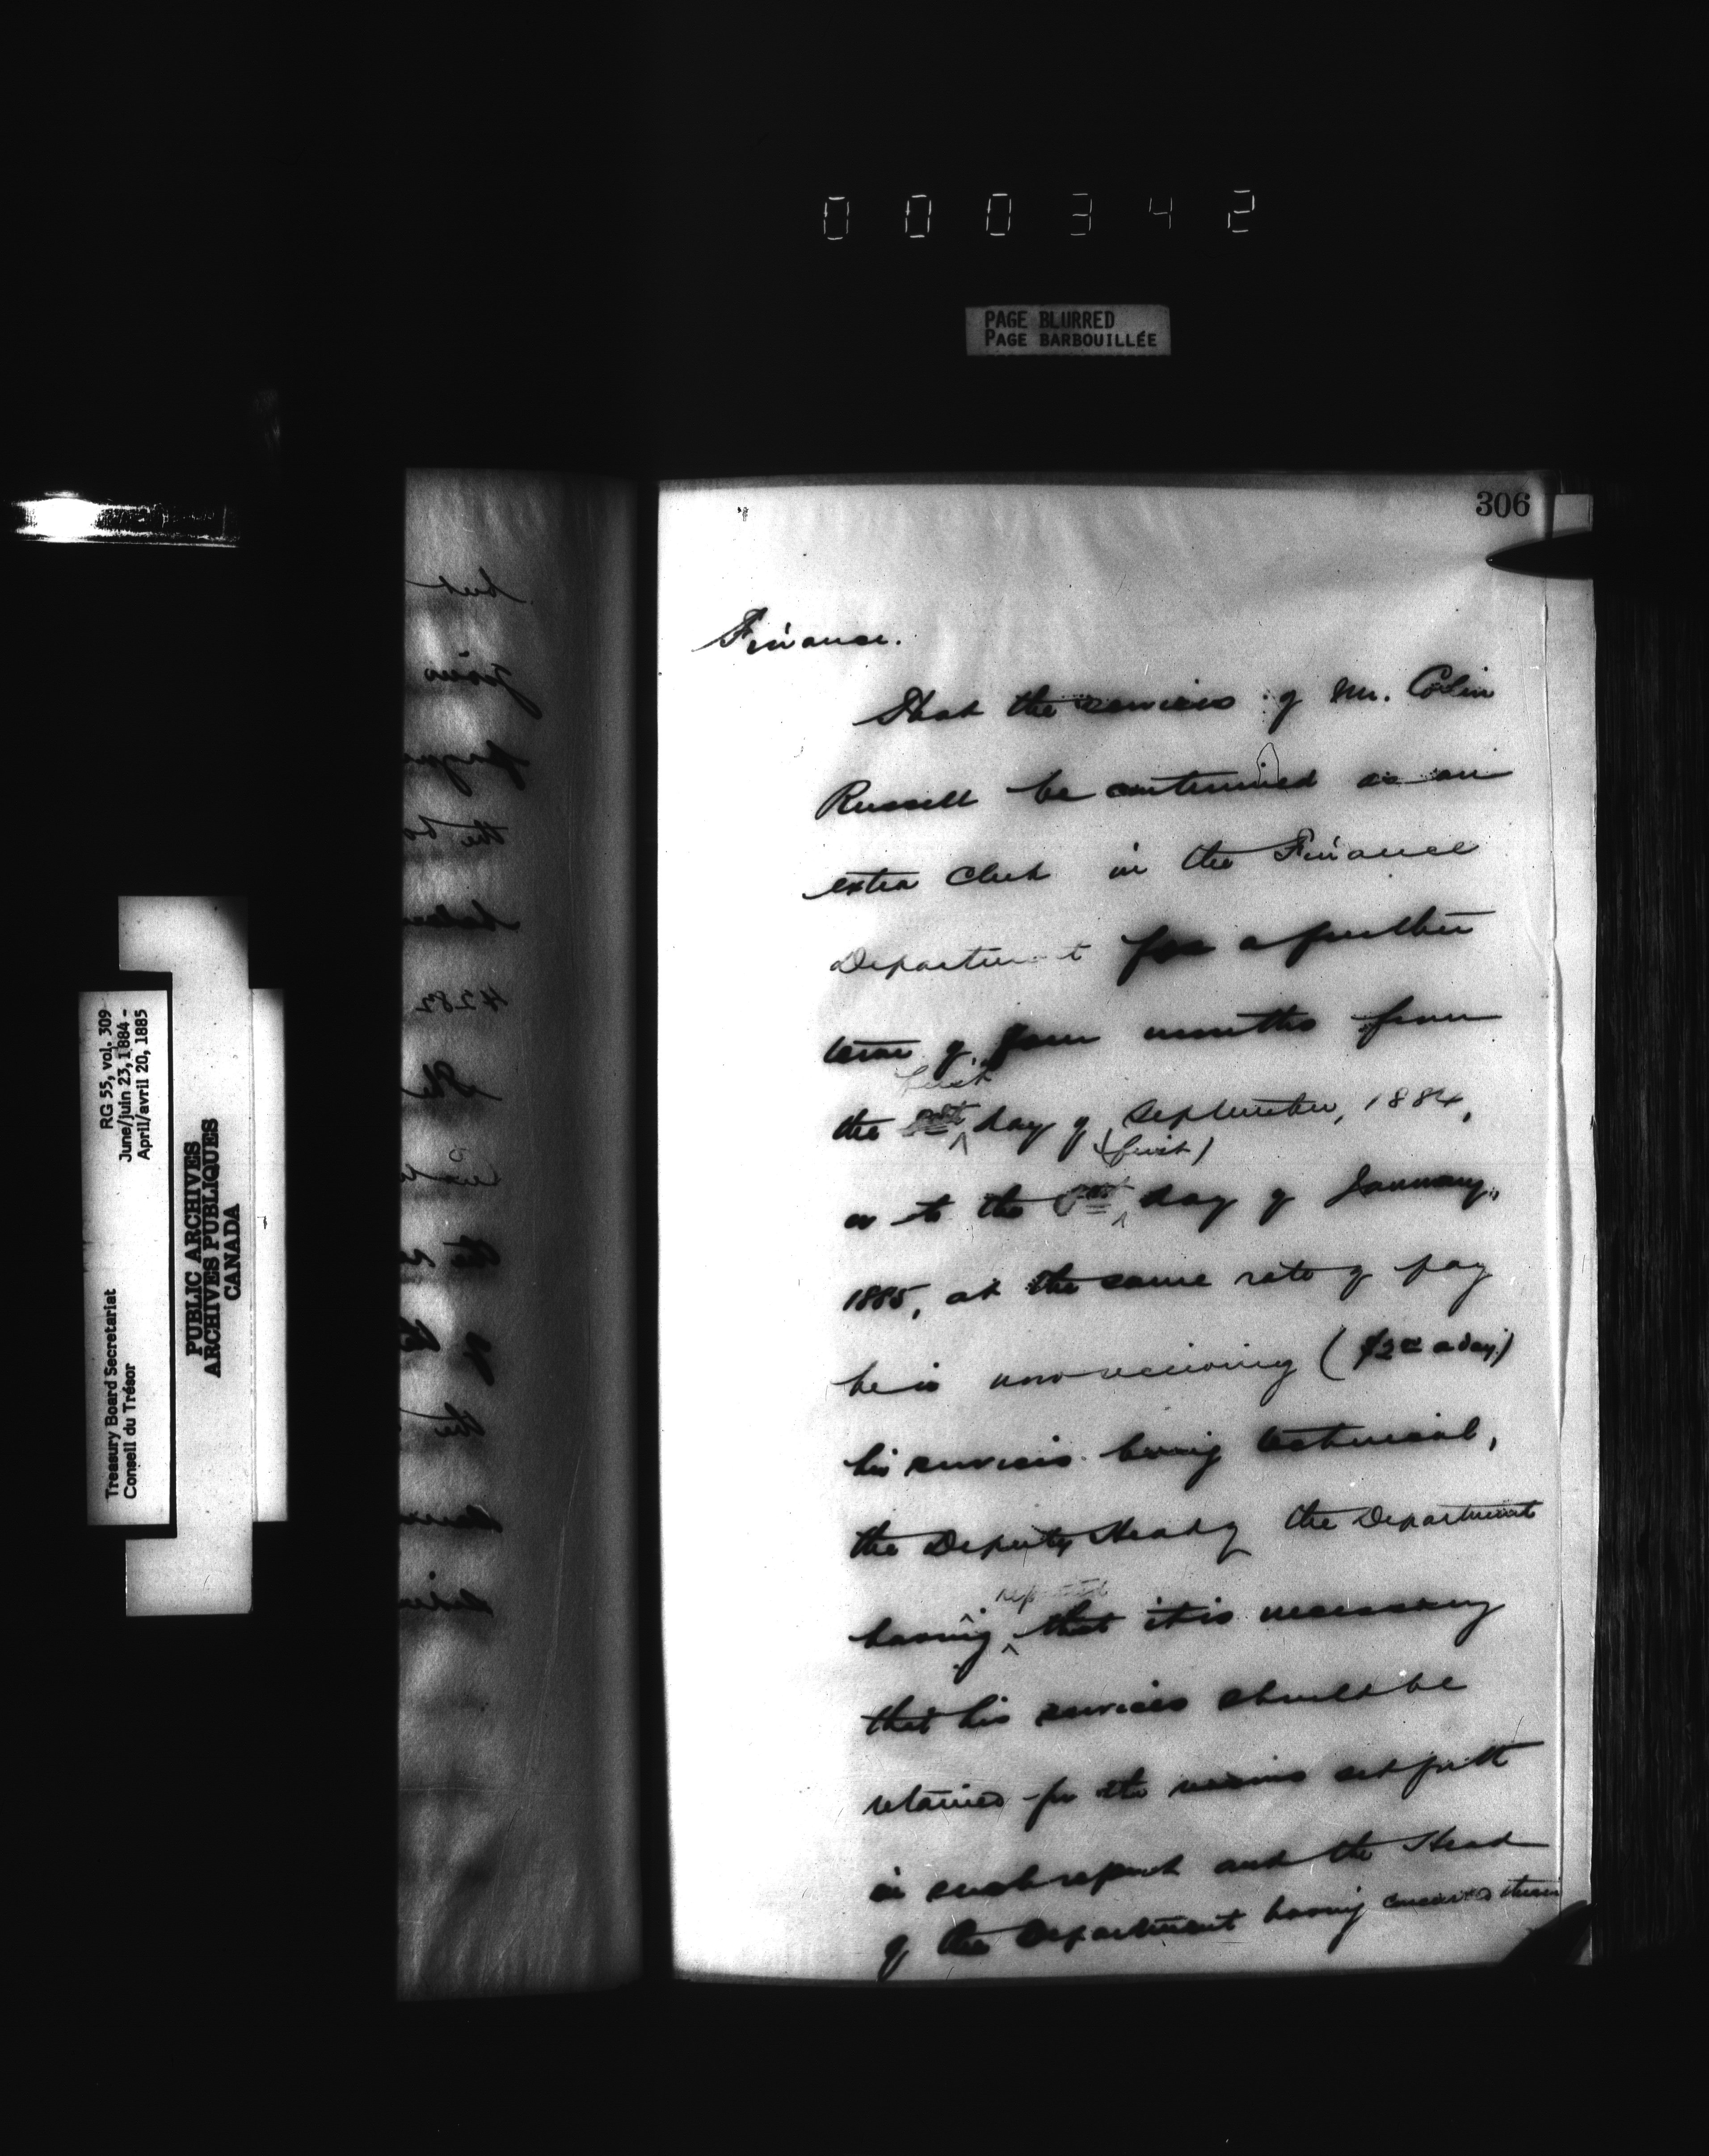 000342
PAGE BLURRED
PAGE BARBOUILLÉE
306
RG 55, vol. 309
June/juin 23, 1884 -
April/avril 20, 1885
Treasury Board Secretariat
Conseil du Trésor
PUBLIC ARCHIVES
ARCHIVES PUBLIQUES
CANADA
Finance.
That the services of Mr. Colin
Russell be continued as an
extra Clerk in the Finance
Department for a further
term of four months from
first
the day of September, 1884,
(first)
or to the day of January,
1885, at the same rate of pay
he is now receiving ($2 a day)
his services being technical,
the Deputy Head of the Department
reported
having that it is necessary
that his services should be
retained for the reasons set forth
in such report and the Head
of the Department having concurred therein